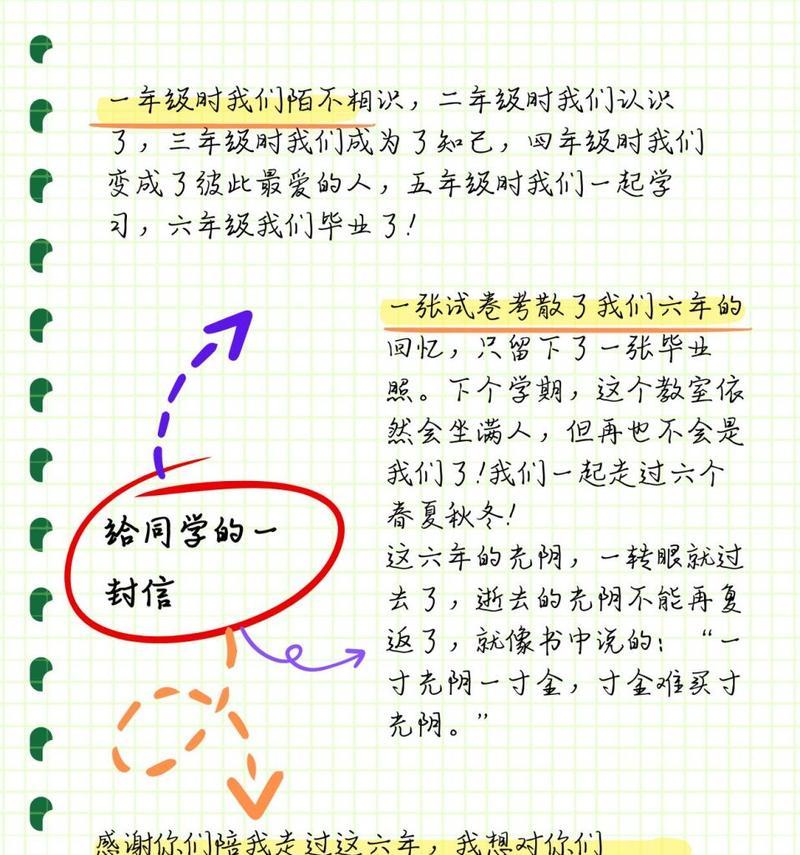 一年级时我们陌不相识，二年级时我们认识
了，三年级时我们成为了知己，四年级时我们
变成了彼此最爱的人，五年级时我们一起学
习，六年级我们毕业了！
一张试卷考散了我们六年的
回忆，只留下了一张毕业
照。下个学期，这个教室依
然会坐满人，但再也不会是
我们了！我们一起走过六个
春夏秋冬！
这六年的光阴，一转眼就过
去了，逝去的光阴不能再复
返了，就像书中说的：“一
寸光阴一寸金，寸金难买寸
光阴。”
给同学的一
封信
感谢你们陪我走过这六年，我想对你们